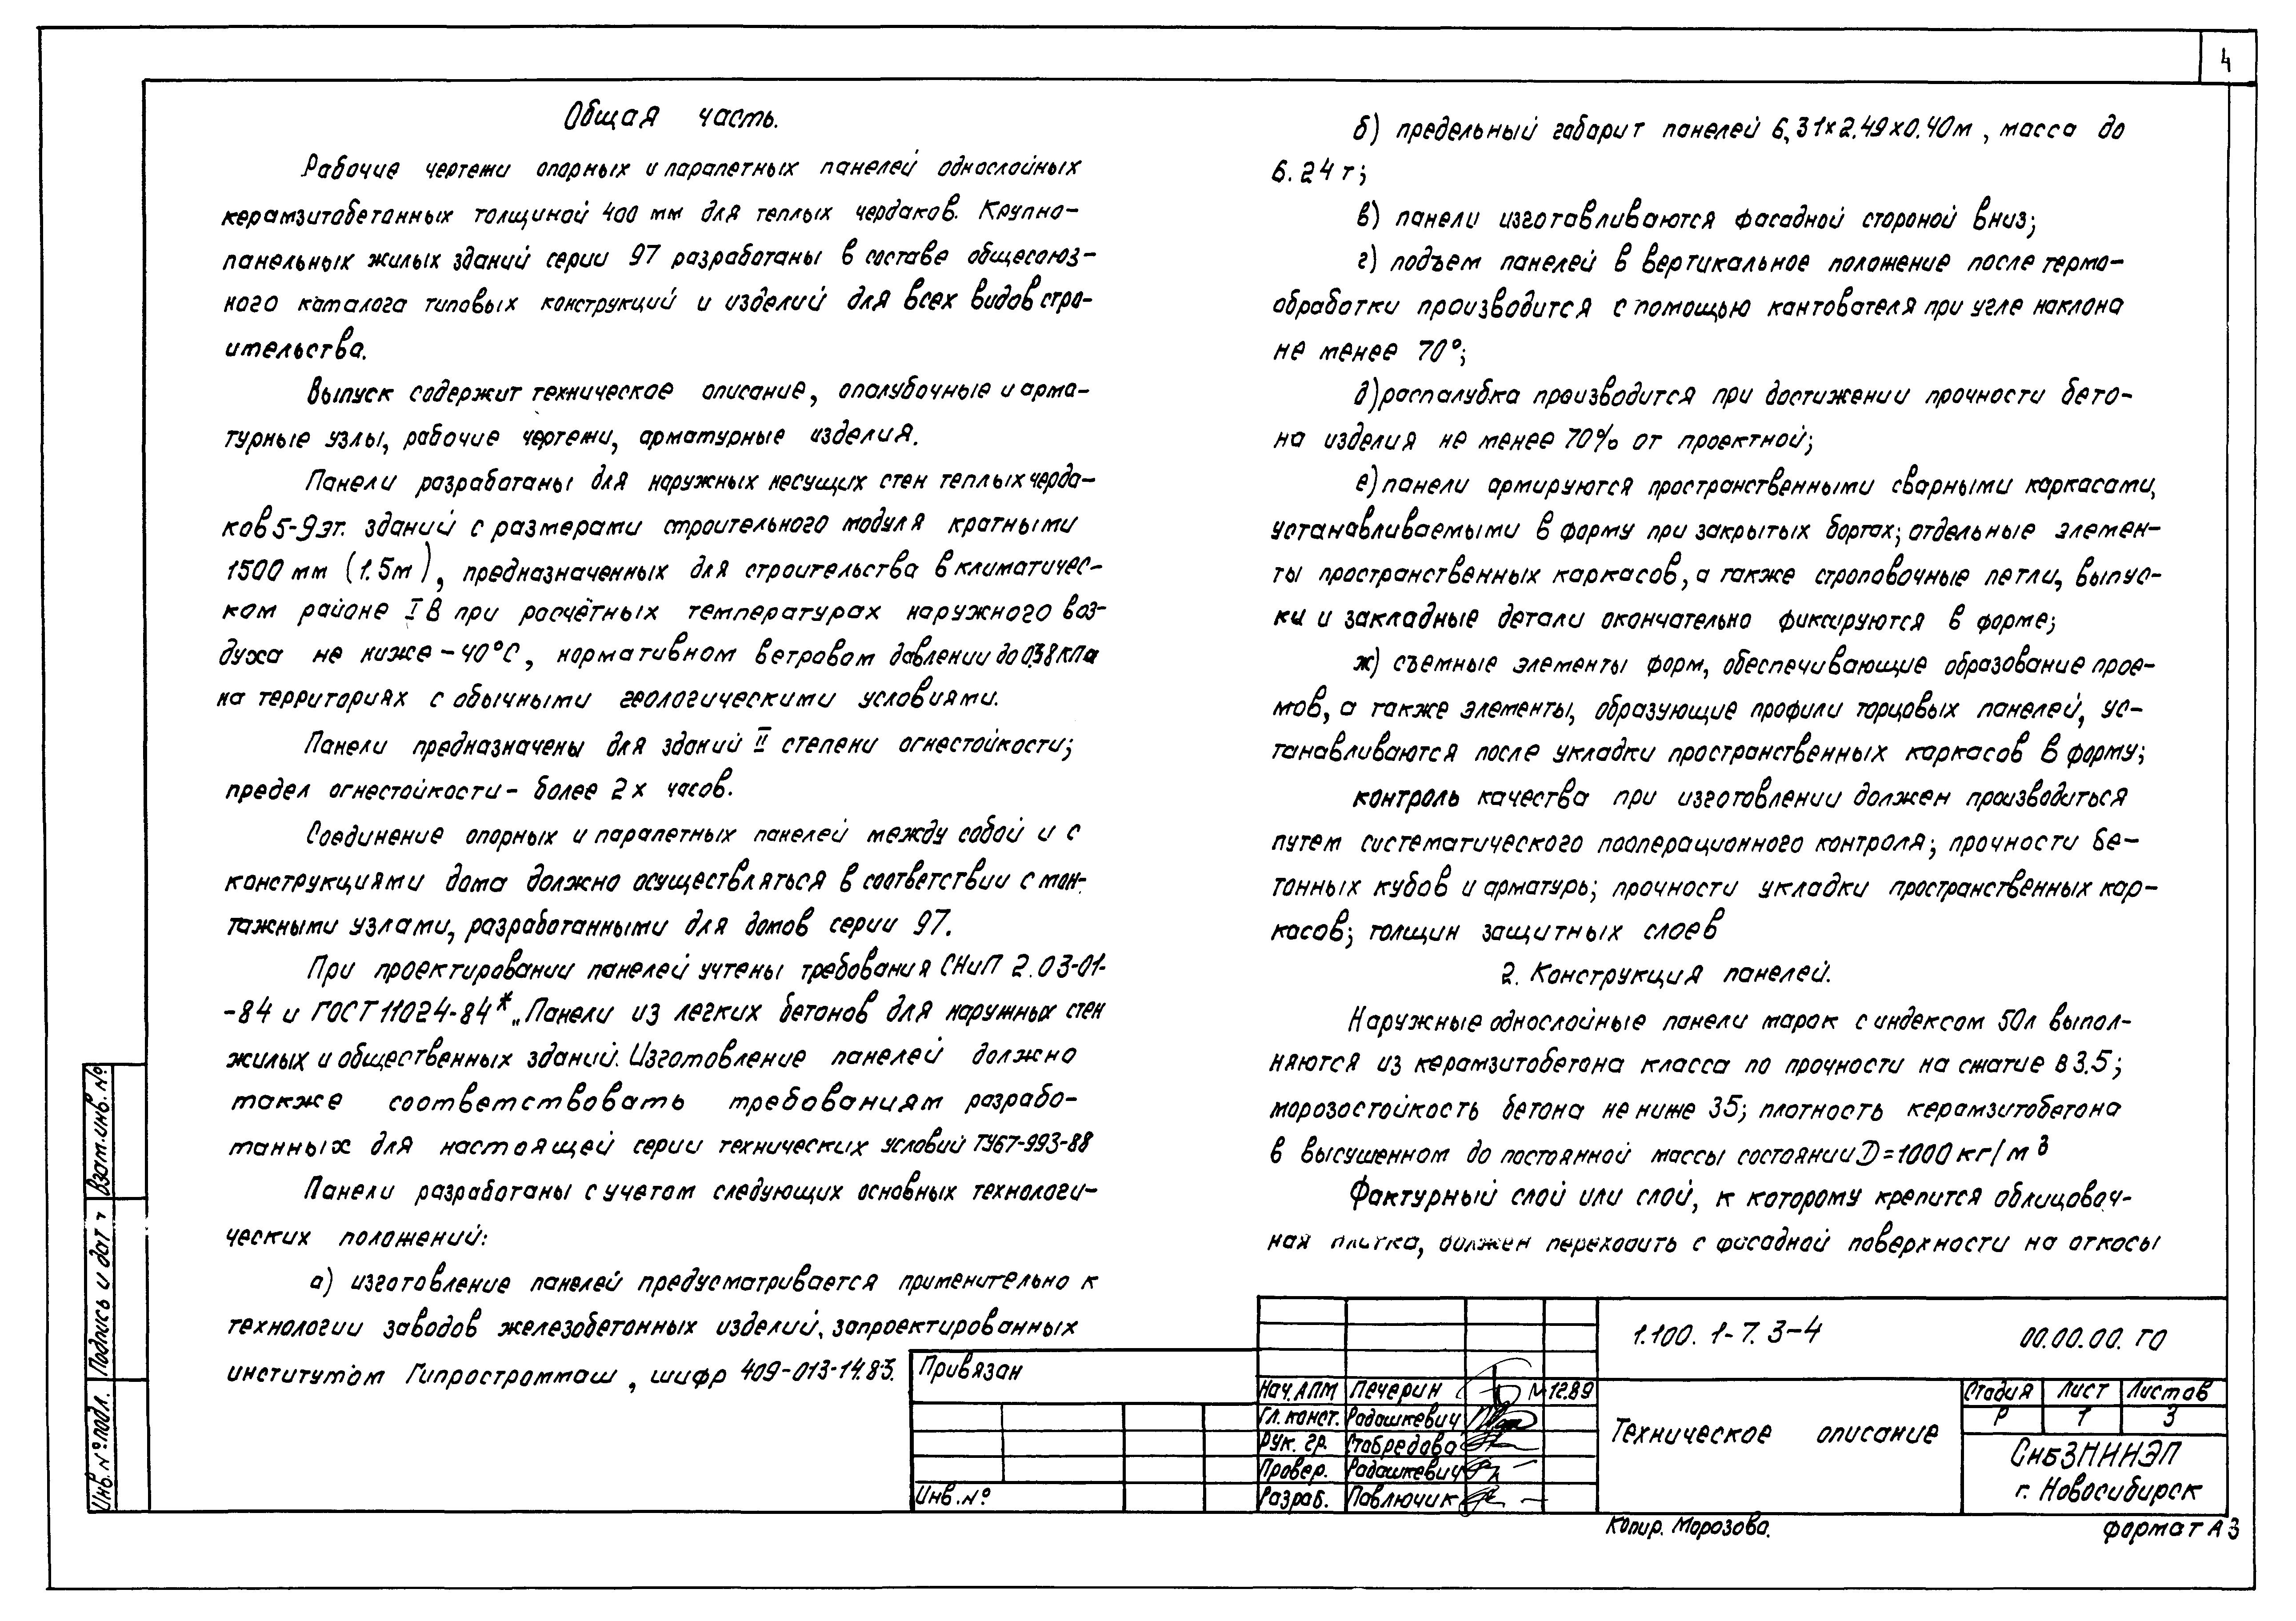 4
Общая часть.
Рабочие чертежи опорных и парапетных панелей однослойных
керамзитобетонных толщиной 400 мм для теплых чердаков. Крупно-
панельных жилых зданий серии 97 разработаны в составе общесоюз-
ного каталога типовых конструкций и изделий для всех видов стро-
ительства.
Выпуск содержит техническое описание, опалубочные и арма-
турные узлы, рабочие чертежи, арматурные изделия.
Панели разработаны для наружных несущих стен теплых черда-
ков 5-9 эт. зданий с размерами строительного модуля кратными
1500 мм (1.5м), предназначенных для строительства в климатичес-
ком районе IВ при расчётных температурах наружного воз-
духа не ниже -40°С, нормативном ветровом давлении до 0.38 кПа
на территориях с обычными геологическими условиями.
Панели предназначены для зданий II степени огнестойкости;
предел огнестойкости - более 2х часов.
Соединение опорных и парапетных панелей между собой и с
конструкциями дома должно осуществляться в соответствии с мон-
тажными узлами, разработанными для домов серии 97.
При проектировании панелей учтены требования СНиП 2.03-01-
-84 и ГОСТ 11024-84* „Панели из легких бетонов для наружных стен
жилых и общественных зданий. Изготовление панелей должно
также соответствовать требованиям разрабо-
танных для настоящей серии технических условий ТУ67-993-88
Панели разработаны с учетом следующих основных технологи-
ческих положений:
а) изготовление панелей предусматривается применительно к
технологии заводов железобетонных изделий, запроектированных
институтом Гипростроммаш, шифр 409-013-14.83.
б) предельный габарит панелей 6,31х2.49х0.40м, масса до
6.24 т;
в) панели изготавливаются фасадной стороной вниз;
г) подъем панелей в вертикальное положение после термо-
обработки производится с помощью кантователя при угле наклона
не менее 70°;
д) распалубка производится при достижении прочности бето-
на изделия не менее 70% от проектной;
е) панели армируются пространственными сварными каркасами,
устанавливаемыми в форму при закрытых бортах; отдельные элемен-
ты пространственных каркасов, а также строповочные петли, выпус-
ки и закладные детали окончательно фиксируются в форме;
ж) съемные элементы форм, обеспечивающие образование прое-
мов, а также элементы, образующие профили торцовых панелей, ус-
танавливаются после укладки пространственных каркасов в форму;
контроль качества при изготовлении должен производиться
путем систематического пооперационного контроля; прочности бе-
тонных кубов и арматуры; прочности укладки пространственных кар-
касов; толщин защитных слоев
2. Конструкция панелей.
Наружные однослойные панели марок с индексом 50л выпол-
няются из керамзитобетона класса по прочности на сжатие В3.5;
морозостойкость бетона не ниже 35; плотность керамзитобетона
в высушенном до постоянной массы состоянии D=1000 кг/м3
Фактурный слой или слой, к которому крепится облицовоч-
ная плитка, должен переходить с фасадной поверхности на откосы
Взам.инв.№
Подпись и дат
Инв.№подл.
Привязан
Инв.№
Нач.АПМ Печерин 12.89
Гл. конст. Радашкевич
Рук. гр. Стабредова
Провер. Радашкевич
Разраб. Павлючик
1.100.1-7.3-4 00.00.00.ТО
Техническое описание
Стадия Лист Листов
Р 1 3
СибЗНИИЭП
г. Новосибирск
Копир. Морозова.
Формат А3